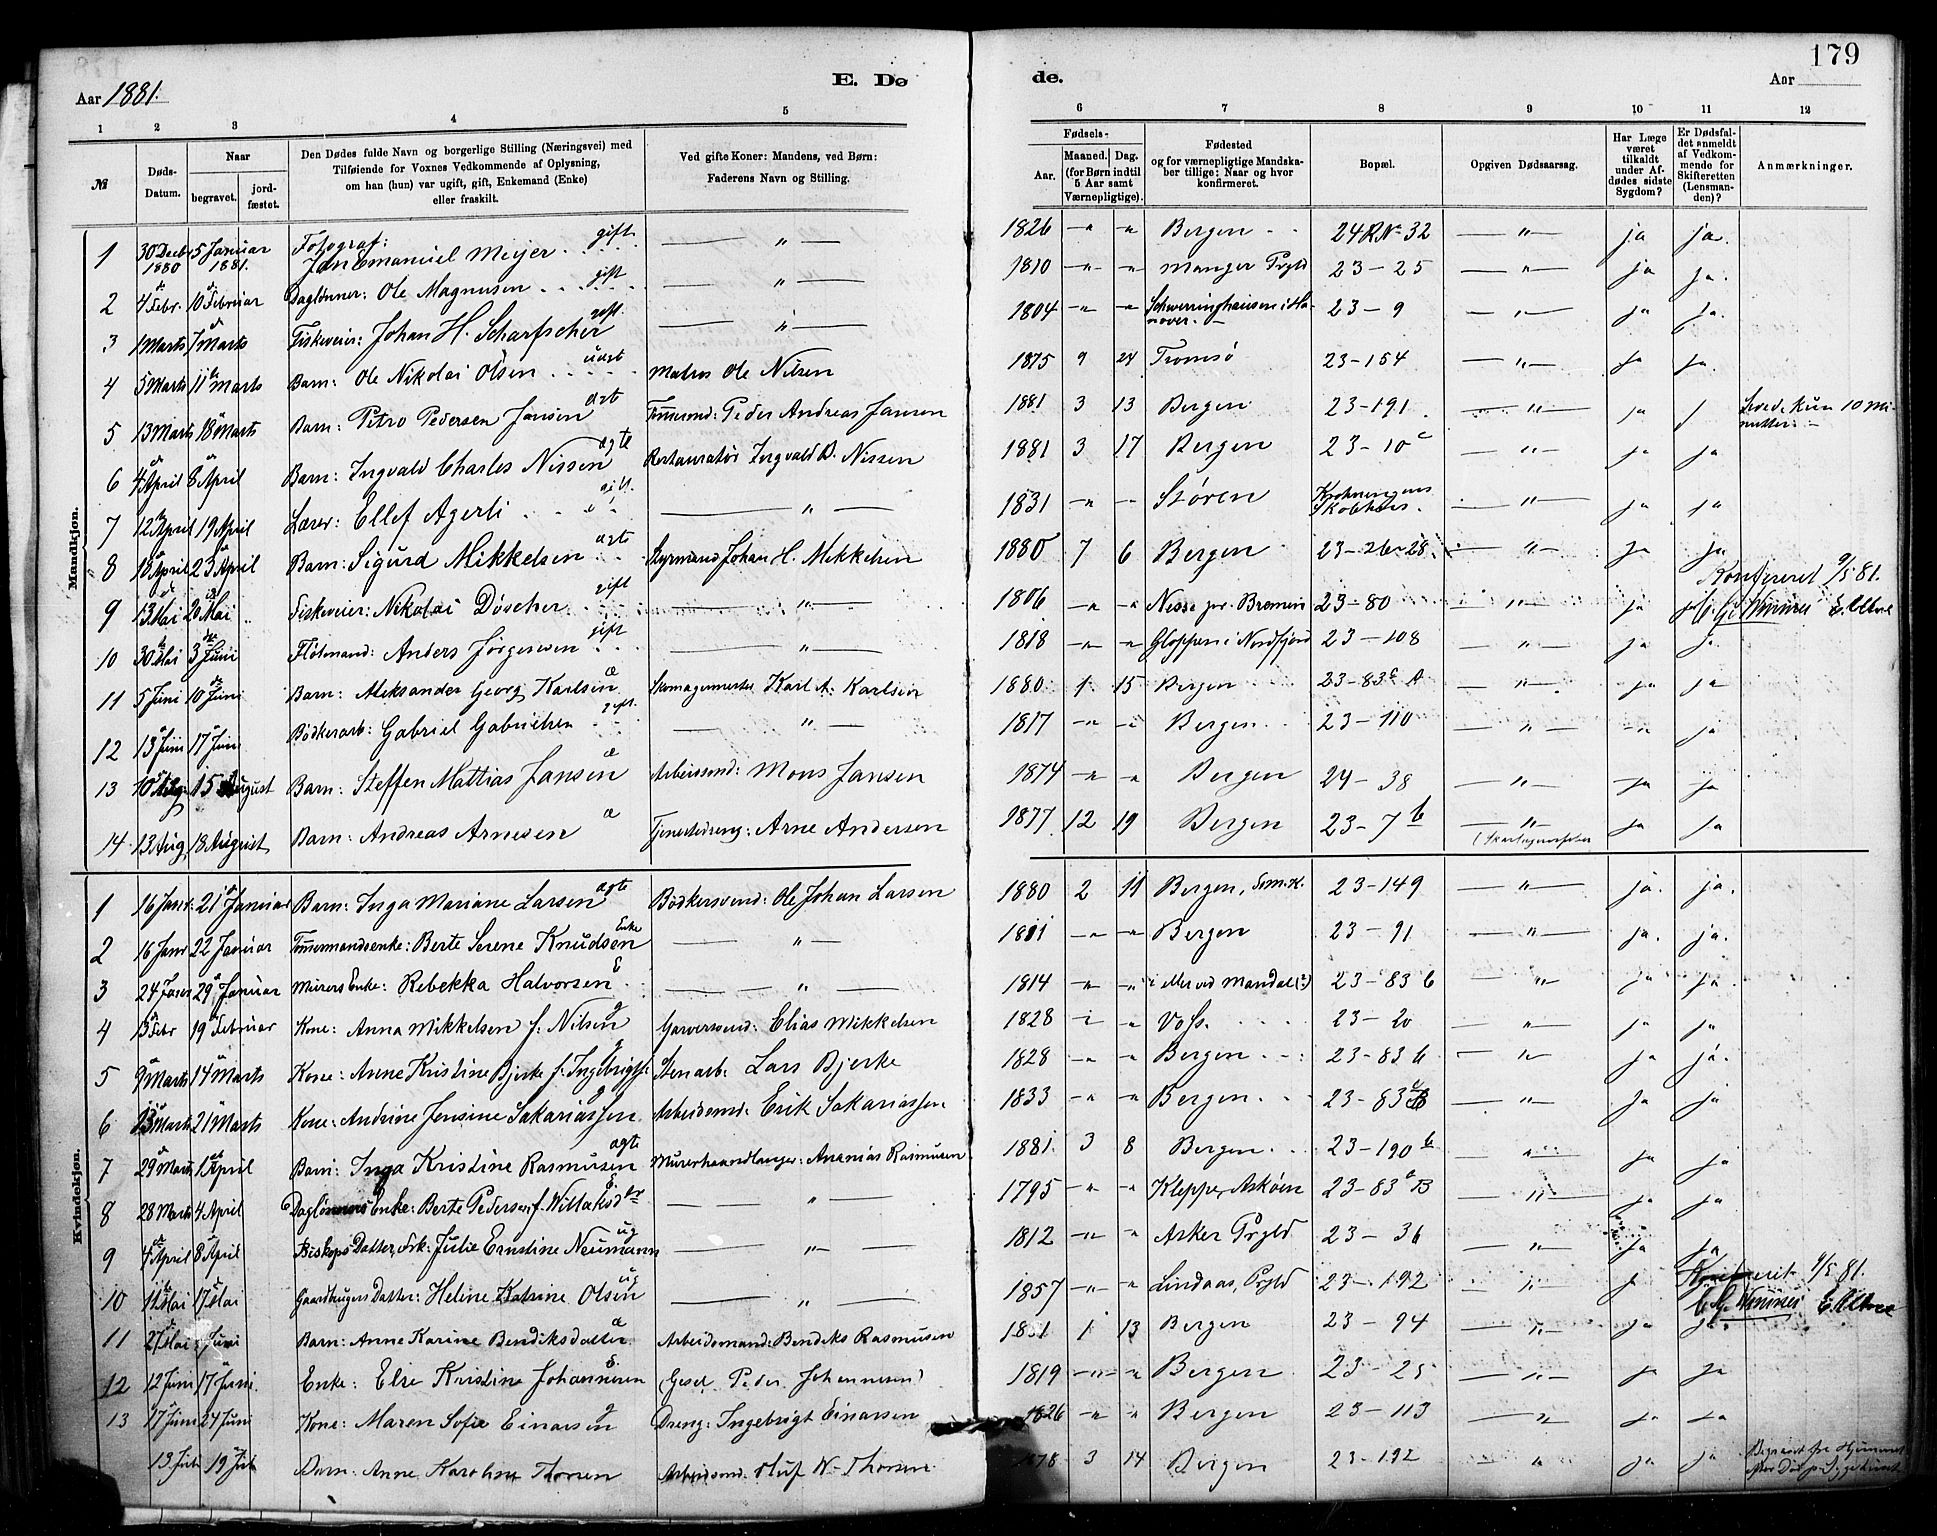 179
Aar 1881.
E. Dø
de.
Aar
1 2 3 4 5
6 7 8 9 10 11 12
№
Døds-
Datum.
Naar
begravet.
jord-
fæstet.
Den Dødes fulde Navn og borgerlige Stilling (Næringsvei) med
Tilføiende for Voxnes Vedkommende af Oplysning,
om han (hun) var ugift, gift, Enkemand (Enke)
eller fraskilt.
Ved gifte Koner: Mandens, ved Børn:
Faderens Navn og Stilling.
Fødsels-
Aar.
Maaned.
Dag.
(for Børn indtil
5 Aar samt
Værnepligtige).
Fødested
og for værnepligtige Mandska-
ber tillige: Naar og hvor
konfirmeret.
Bopæl.
Opgiven Dødsaarsag.
Har Læge
været
tilkaldt
under Af-
dødes sidste
Sygdom?
Er Dødsfal-
det anmeldt
af Vedkom-
mende for
Skifteretten
(Lensman-
den)?
Anmærkninger.
Mandkjøn.
1 30 Decb 1880 5 Januar 1881. Fotograf: Jan Emanuel Meyer gift — " — 1826 " " Bergen 24 R№ 32 — " — ja ja.
2 4 Febr. 10 Februar Daglønner: Ole Magnusen gift — " — 1810 " " Manger Prgld 23-25 — " — ja ja.
3 1 Marts 7 Marts Fiskeveier: Johan H. Scharfscher gift — " — 1804 " " i Ha- nover. 23-9 — " — ja ja.
4 5 Marts 11 Marts Barn: Ole Nikolai Olsen Matros Ole Nilsen 1875 9 24 Tromsø 23-154 — " — ja ja.
5 13 Marts 18 Marts Barn: Petro Pedersen Jansen Peder Andreas Jansen 1881 3 13 Bergen 23-191 — " — ja Levede kun 10 Mi- nutter.
6 4 April 8 April Barn: Ingvald Charles Nissen ægte Restauratør Ingvald B. Nissen 1881 3 17 Bergen 23-10c — " — ja ja
7 12 April 19 April Lærer: Ellef Agerli gift — " — 1831 " " Støren — " — ja ja
8 18 April 23 April Barn: Sigurd Mikkelsen Styrmand Johan H. Mikkelsen 1880 7 6 Bergen 23-26-28 — " — ja ja
Konfereret 9/5 81.
9 13 Mai 20 Mai Fiskeveier: Nikolai Döscher gift — " — 1806 " " Nesse pr. Bremen 23-80 — " — ja ja
10 30 Mai 3 Juni Flötmand: Anders Jörgensen gift — " — 1818 " " Gloppen i Nordfjord 23-108 — " — ja ja
11 5 Juni 10 Juni Barn: Aleksander Georg Karlsen æ Skomagermester Karl A. Karlsen 1880 1 15 Bergen 23-83c A — " — ja ja
12 13 Juni 17 Juni Bödkerarb: Gabriel Gabrielsen gift — " — 1817 " " Bergen 23-110 — " — ja
13 10 Aug 15 August Barn: Steffen Mattias Jansen æ Arbeidsmd: Mons Jansen 1874 " " Bergen 24-38 — " — ja ja
14 13 Aug. 18 August Barn: Andreas Arnesen æ Tjenestedreng: Arne Andersen 1877 12 19 Bergen 23-7b — " — (Skarlagensfeber ja ja
Kvindekjøn.
1 16 Janr. 21 Januar Barn: Inga Mariane Larsen ægte Bödkersvend: Ole Johan Larsen 1880 2 11 Bergen, Dom.K. 23-149 — " — ja. ja.
2 16 Janr 22 Januar Tömmermandsenke: Berte Serene Knudsen Enke — " — 1811 " " Bergen 23-91 — " — ja. ja.
3 24 Janr 29 Januar Murers Enke: Rebekka Halvorsen E — " — 1814 " " i eller ved Mandal(?) 23-83 b — " — ja ja.
4 13 Febr 19 Februar Kone: Anna Mikkelsen f. Nilsen g Garversvend: Elias Mikkelsen 1828 " " Voss. 23-20 — " — ja ja
5 9 Marts 14 Marts Kone: Anne Kristine Bjerke f. Ingebrigts. g Stenarb: Lars Bjerke 1828 " " Bergen 23-83 b — " — ja ja.
6 21 Marts Kone: Andrine Jensine Sakariassen g Arbeidsmd: Erik Sakariassen 1833 " " Bergen — " — ja ja
7 29 Marts 1 April Barn: Inga Kristine Rasmusen ægte Murerhaandlanger: Ananias Rasmusen 1881 3 8 Bergen 23-190 b — " — ja ja
8 28 Marts 4 April Daglønners Enke: Berte Pedersen f. Willaksdtr E — " — 1795 " " Kleppe, Asköen 23-83 B — " — ja ja
9 4 April 8 April Biskops Datter, Frk: Julie Ernstine Neumann ug — " — 1812 " " Asker Prgld 23-36 — " — ja ja
Konfereret 9/5 81.
10 11 Mai 17 Mai Gaardbrugers Datter: Heline Katrine Olsen ug — " — 1857 " " Lindaas, Prgld 23-192 — " — ja
11 27 Mai Juni Barn: Anne Karine Bendiksdatter æ Arbeidsmand: Bendiks Rasmusen 1881 1 13 Bergen 23-94 — " — ja ja
12 12 Juni 17 Juni Enke: Else Kristine Johannesen E. (Gesel Peder Johannesen) 1819 " " Bergen 23-25 — " — ja ja
13 17 Juni 24 Juni Kone: Maren Sofie Einarsen g Dreng: Ingebrigt Einarsen 1826 " " Bergen 23-113 — " — ja ja
13 Juli 19 Juli Barn: Anne Karoline Thorsen Arbeidsmd. Oluf W. Thorsen 1878 3 14 Bergen 23-192 " ja ja